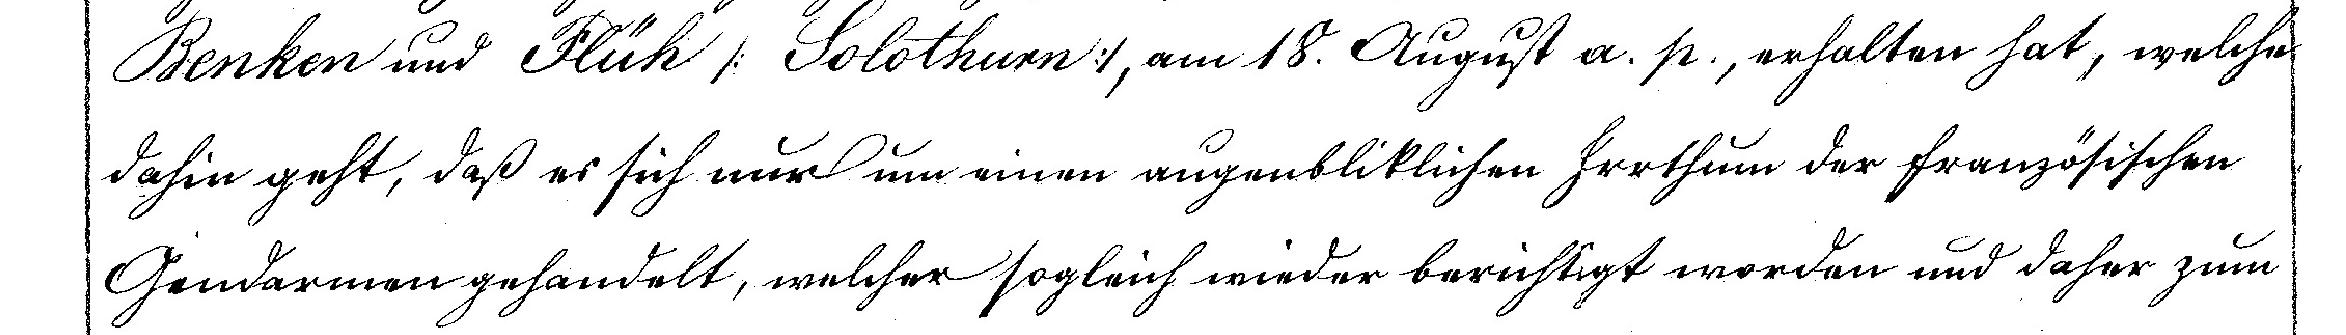 Benken und Flüh /: Solothurn :/, am 18. August a. p., erhalten hat, welche
dahin geht, daß es sich nur um einen augenbliklichen Irrthum der französischen
Gendarmen gehandelt, welcher sogleich wieder berichtigt worden und daher zum